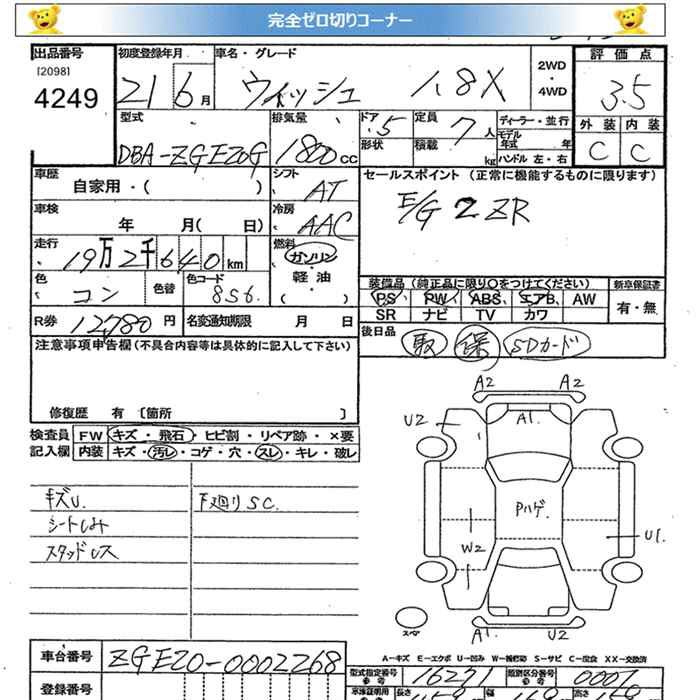 完全ゼロ切りコーナー
出品番号 初度登録年月 車名・グレード 2WD・4WD 評価点
[2098]
4249 21 6月 ウィッシュ 1.8X 3.5
型式 排気量 ドア 5 定員 7人 ディーラー・並行 外装 内装
DBA-ZGE20G 1800cc 形状 積載 kg モデル年式 年 C C
ハンドル 左・右
車歴 自家用・( ) シフト AT セールスポイント (正常に機能するものに限ります)
E/G 2ZR
車検 年 月( 日) 冷房 AAC
走行 19万2千640km 燃料 ガソリン・軽油・( )
色 コン 色替 色コード 8S6. 装備品 (純正品に限り○をつけてください) 新車保証書
PS PW ABS エアB AW 有・無
SR ナビ TV カワ
R券 12780円 名変通知期限 月 日 後日品 取 保 SDカード
注意事項申告欄 (不具合内容等は具体的に記入して下さい)
修復歴 有 [箇所 ]
検査員 FW キズ・飛石・ヒビ割・リペア跡・×要
記入欄 内装 キズ・汚レ・コゲ・穴・スレ・キレ・破レ
キズU. 下廻りSC.
シートしみ
スタッドレス
A2 A2
U2 A1.
Pハゲ.
W2 U1.
スペア A1. U2
A—キズ E—エクボ U—凹み W—補修跡 S—サビ C—腐食 XX—交換済
車台番号 ZGE20-0002268 型式指定番号 16271 類別区分番号 0007
登録番号 長さ 幅 高さ